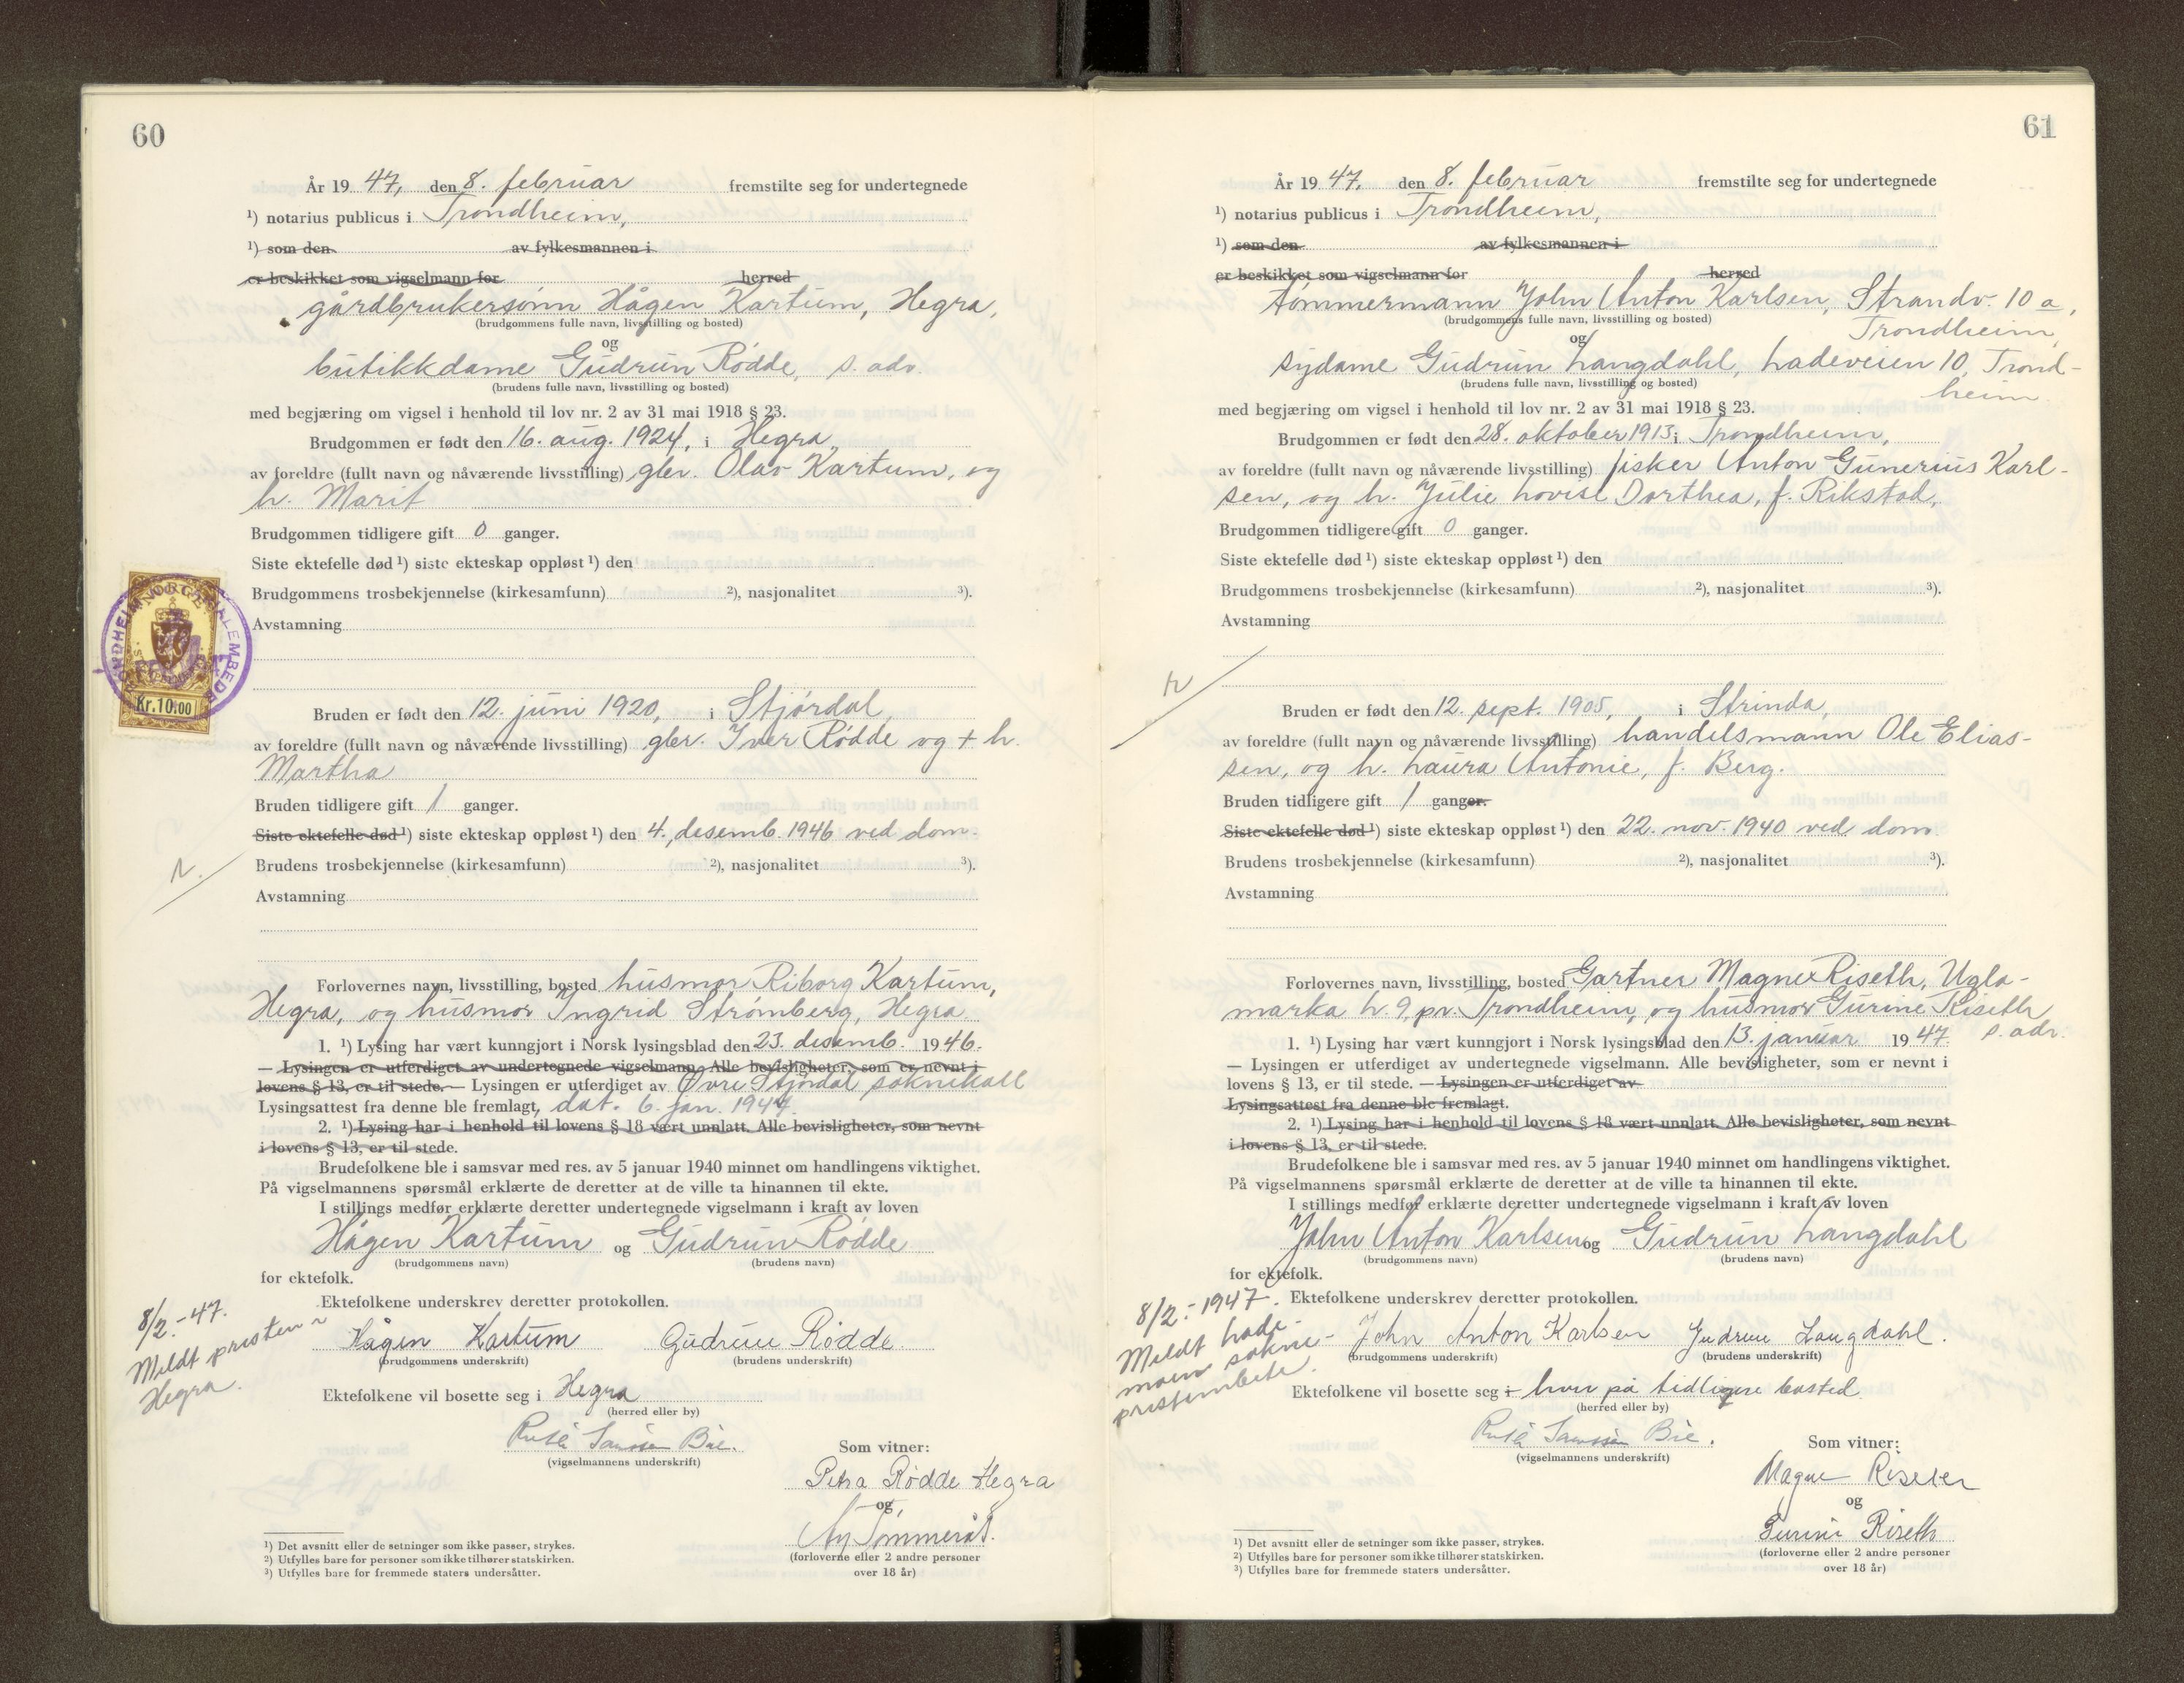 60
År 19 47, den 8. februar fremstilte seg for undertegnede
¹) notarius publicus i Trondheim,
¹) som den av fylkesmannen i
er beskikket som vigselmann for herred
gårdbrukersønn Hågen Kartum, Hegra,
(brudgommens fulle navn, livsstilling og bosted)
og
butikkdame Gudrun Rødde, s. adr.
(brudens fulle navn, livsstilling og bosted)
med begjæring om vigsel i henhold til lov nr. 2 av 31 mai 1918 § 23.
Brudgommen er født den 16. aug. 1924, i Hegra,
av foreldre (fullt navn og nåværende livsstilling) gbr. Olav Kartum, og
h. Marit
Brudgommen tidligere gift 0 ganger.
Siste ektefelle død ¹) siste ekteskap oppløst ¹) den
Brudgommens trosbekjennelse (kirkesamfunn) ²), nasjonalitet ³).
Avstamning
NORGE
Kr. 10.00
Bruden er født den 12. juni 1920, i Stjørdal,
av foreldre (fullt navn og nåværende livsstilling) gbr. Iver Rødde og + h.
Martha
Bruden tidligere gift 1 ganger.
Siste ektefelle død ¹) siste ekteskap oppløst ¹) den 4. desemb. 1946 ved dom.
Brudens trosbekjennelse (kirkesamfunn) ²), nasjonalitet ³).
Avstamning
Forlovernes navn, livsstilling, bosted husmor Riborg Kartum,
Hegra, og husmor Ingrid Strømberg, Hegra
1. ¹) Lysing har vært kunngjort i Norsk lysingsblad den 23. desemb. 19 46.
— Lysingen er utferdiget av undertegnede vigselmann. Alle bevisligheter, som er nevnt i
lovens § 13, er til stede. — Lysingen er utferdiget av Øvre Stjørdal soknekall
Lysingsattest fra denne ble fremlagt, dat. 6. jan. 1947.
2. ¹) Lysing har i henhold til lovens § 18 vært unnlatt. Alle bevisligheter, som nevnt
i lovens § 13, er til stede.
Brudefolkene ble i samsvar med res. av 5 januar 1940 minnet om handlingens viktighet.
På vigselmannens spørsmål erklærte de deretter at de ville ta hinannen til ekte.
I stillings medfør erklærte deretter undertegnede vigselmann i kraft av loven
Hågen Kartum og Gudrun Rødde
(brudgommens navn) (brudens navn)
for ektefolk.
Ektefolkene underskrev deretter protokollen.
8/2.-47.
Meldt presten i
Hegra.
Hågen Kartum Gudrun Rødde.
(brudgommens underskrift) (brudens underskrift)
Ektefolkene vil bosette seg i Hegra
(herred eller by)
Bie.
(vigselmannens underskrift)
Som vitner:
Petra Rødde Hegra
og
(forloverne eller 2 andre personer
over 18 år)
¹) Det avsnitt eller de setninger som ikke passer, strykes.
²) Utfylles bare for personer som ikke tilhører statskirken.
³) Utfylles bare for fremmede staters undersåtter.
61
År 19 47, den 8. februar fremstilte seg for undertegnede
¹) notarius publicus i Trondheim,
¹) som den av fylkesmannen i
er beskikket som vigselmann for herred
tømmermann John Anton Karlsen, Strandv. 10 a,
Trondheim,
(brudgommens fulle navn, livsstilling og bosted)
og
sydame Gudrun Langdahl, Ladeveien 10, Trond-
heim
(brudens fulle navn, livsstilling og bosted)
med begjæring om vigsel i henhold til lov nr. 2 av 31 mai 1918 § 23.
Brudgommen er født den 28. oktober 1913 i Trondheim,
av foreldre (fullt navn og nåværende livsstilling) fisker Anton Gunerius Karl-
sen, og h. Julie Lovise Dorthea, f. Rikstad,
Brudgommen tidligere gift 0 ganger.
Siste ektefelle død ¹) siste ekteskap oppløst ¹) den
Brudgommens trosbekjennelse (kirkesamfunn) ²), nasjonalitet ³).
Avstamning
Bruden er født den 12. sept. 1905, i Strinda,
av foreldre (fullt navn og nåværende livsstilling) handelsmann Ole Elias-
sen, og h. Laura Antonie, f. Berg.
Bruden tidligere gift 1 ganger.
Siste ektefelle død ¹) siste ekteskap oppløst ¹) den 22. nov. 1940 ved dom
Brudens trosbekjennelse (kirkesamfunn) ²), nasjonalitet ³).
Avstamning
Forlovernes navn, livsstilling, bosted Gartner Magne Riseth, Ugla-
marka h. 9, pr. Trondheim, og husmor Gurine Riseth
s. adr.
1. ¹) Lysing har vært kunngjort i Norsk lysingsblad den 13. januar 19 47.
— Lysingen er utferdiget av undertegnede vigselmann. Alle bevisligheter, som er nevnt i
lovens § 13, er til stede. — Lysingen er utferdiget av
Lysingsattest fra denne ble fremlagt.
2. ¹) Lysing har i henhold til lovens § 18 vært unnlatt. Alle bevisligheter, som nevnt
i lovens § 13, er til stede.
Brudefolkene ble i samsvar med res. av 5 januar 1940 minnet om handlingens viktighet.
På vigselmannens spørsmål erklærte de deretter at de ville ta hinannen til ekte.
I stillings medfør erklærte deretter undertegnede vigselmann i kraft av loven
John Anton Karlsen og Gudrun Langdahl
(brudgommens navn) (brudens navn)
for ektefolk.
Ektefolkene underskrev deretter protokollen.
8/2.-1947.
Meldt Lade-
moen sokne-
prestembete.
John Anton Karlsen Gudrun Langdahl.
(brudgommens underskrift) (brudens underskrift)
Ektefolkene vil bosette seg i hver på tidligere bosted
(herred eller by)
Bie.
(vigselmannens underskrift)
Som vitner:
Magne Riseth
og
Gurine Riseth
(forloverne eller 2 andre personer
over 18 år)
¹) Det avsnitt eller de setninger som ikke passer, strykes.
²) Utfylles bare for personer som ikke tilhører statskirken.
³) Utfylles bare for fremmede staters undersåtter.